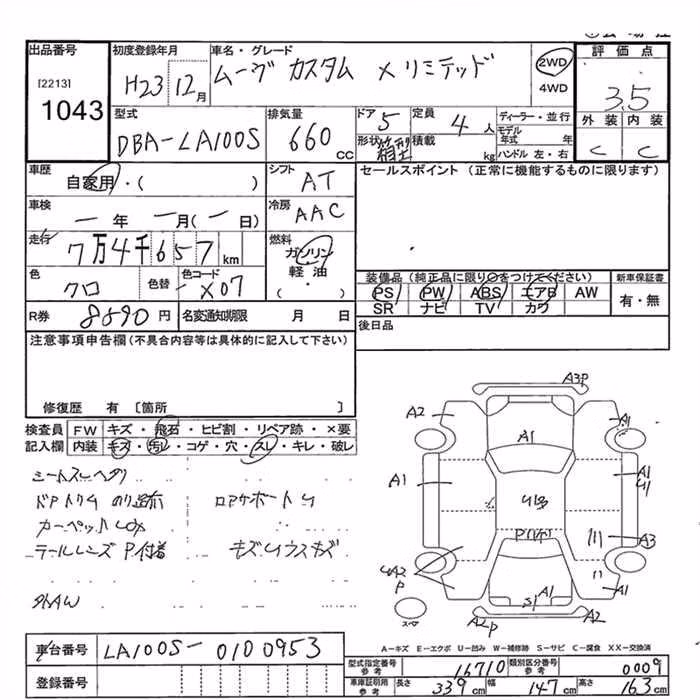 出品番号 初度登録年月 車名・グレード 評価点
[2213] H23 12月 ムーヴ カスタム X リミテッド 2WD 3.5
1043 4WD
型式 排気量 ドア 定員 ディーラー・並行 外装 内装
DBA-LA100S 660cc 5 4人 モデル年式 年 C C
形状 箱型 積載 kg ハンドル 左・右
車歴 自家用・( ) シフト AT セールスポイント (正常に機能するものに限ります)
車検 ー年 ー月(ー日) 冷房 AAC
走行 7万4千657km 燃料 ガソリン
軽油
・( )
色 クロ 色替 色コード X07 装備品 (純正品に限り○をつけてください) 新車保証書
PS PW ABS エアB AW 有・無
SR ナビ TV カワ
R券 8890円 名変通知期限 月 日 後日品
注意事項申告欄(不具合内容等は具体的に記入して下さい)
修復歴 有 [箇所 ]
検査員 FW キズ・飛石・ヒビ割・リペア跡・×要
記入欄 内装 キズ・汚レ・コゲ・穴・スレ・キレ・破レ
シートスレヘタリ
カーペット
テールレンズ P付着 キズ
外AW
A3P
A2 A1
A1
A1 A1
U1
A3
P
A1
S1 A1
A2P A2
スペア
A-キズ E-エクボ U-凹み W-補修跡 S-サビ C-腐食 XX-交換済
車台番号 LA100S-0100953
登録番号
型式指定番号 参考 16710 類別区分番号 参考 0009
車庫証明用 参考 長さ 339cm 幅 147cm 高さ 163cm